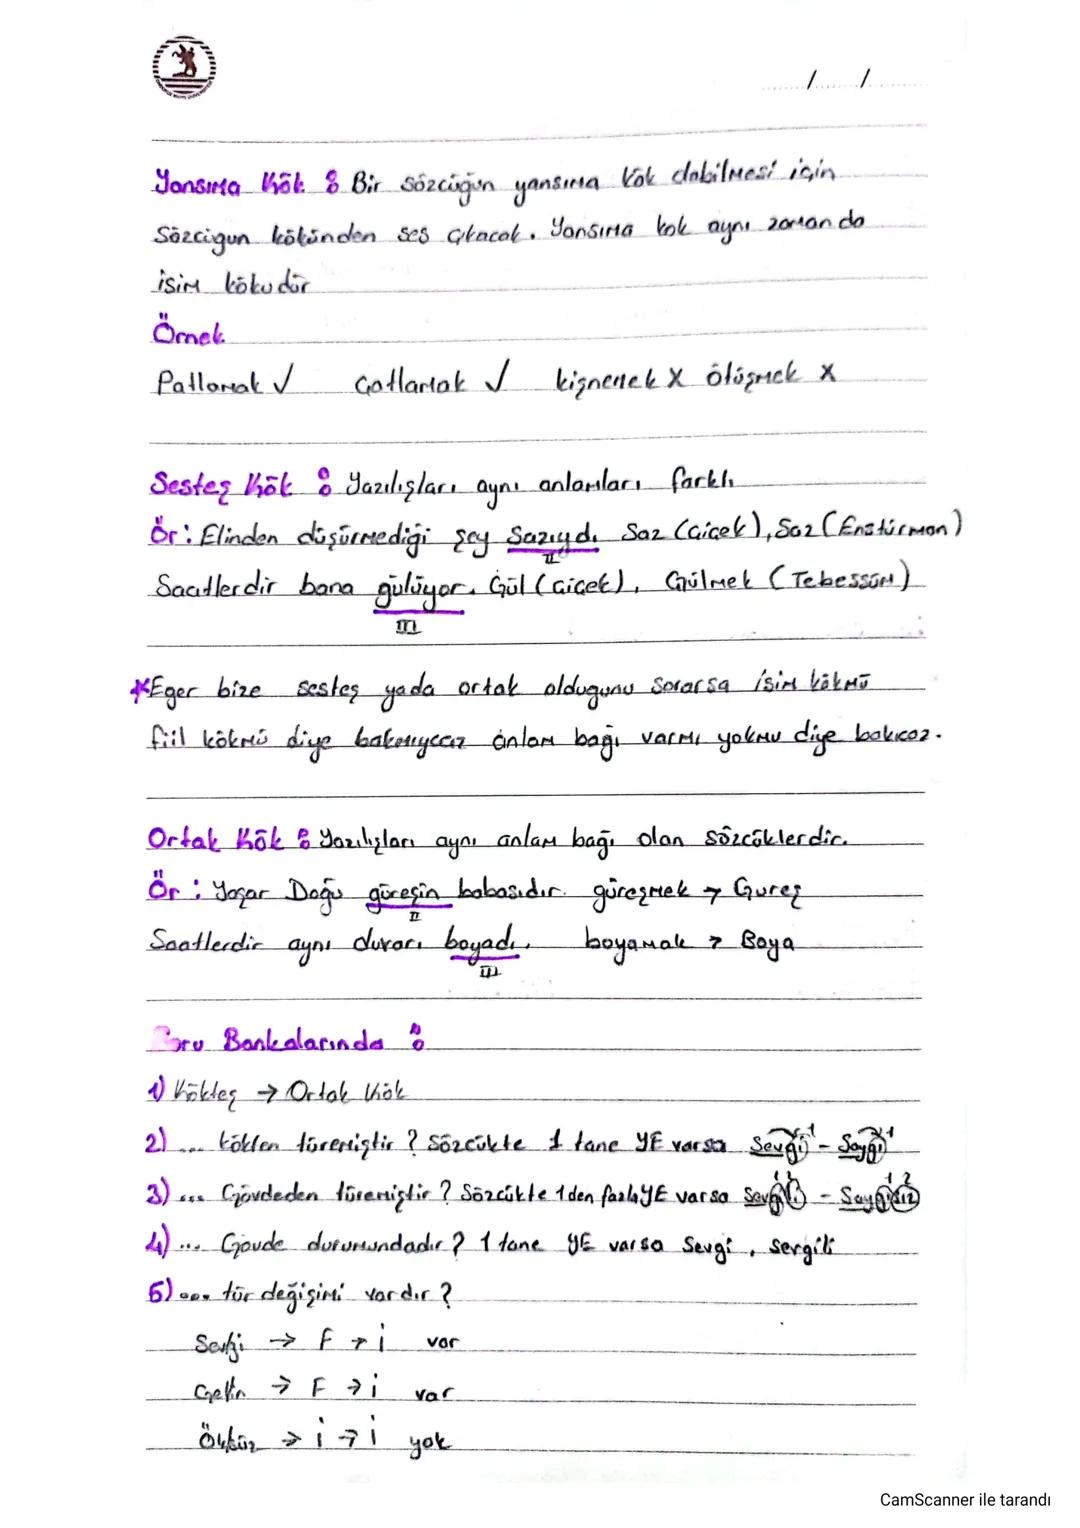 ...../...../.....
Yansıma Kök : Bir sözcüğün yansıma kök olabilmesi için
Sözcigun kökünden ses çıkacak. Yansıma kok aynı zamanda
isim kökudür
Örnek
Patlamak ✓ Çatlamak ✓ kişnemek X ötüşmek X
Sesteş Kök : Yazılışları aynı anlamları farklı
Ör: Elinden düşürmediği şey Sazıydı Saz (Çiçek), Saz (Enstürman)
II
Saatlerdir bana gülüyor. Gül (Çiçek), Gülmek (Tebessüm)
III
*Eger bize sesteş yada ortak oldugunu sorarsa isim kökmü
fiil kökmü diye bakmıycaz anlam bağı varmı yokmu diye bakıcaz.
Ortak Kök : Yazılışları aynı anlam bağı olan sözcüklerdir.
Ör : Yaşar Doğu güreşin babasıdır. güreşmek → Gureş
II
Saatlerdir aynı duvarı boyadı. boyamak → Boya
III
Soru Bankalarında :
1) Kökteş → Ortak Kök
2) ... kökten türemiştir ? Sözcükte 1 tane YE varsa Sevgi 1 - Saygı 1
3) ... Gövdeden türemiştir ? Sözcükte 1 den fazla YE varsa Sevgili 1 2 - Saygısız 1 2
4) ... Govde durumundadır ? 1 tane YE varsa Sevgi, sergili
5) ... tür değişimi vardır ?
Sevgi → F → i var
Gelin → F → i var
Öksüz → i → i yok
CamScanner ile tarandı